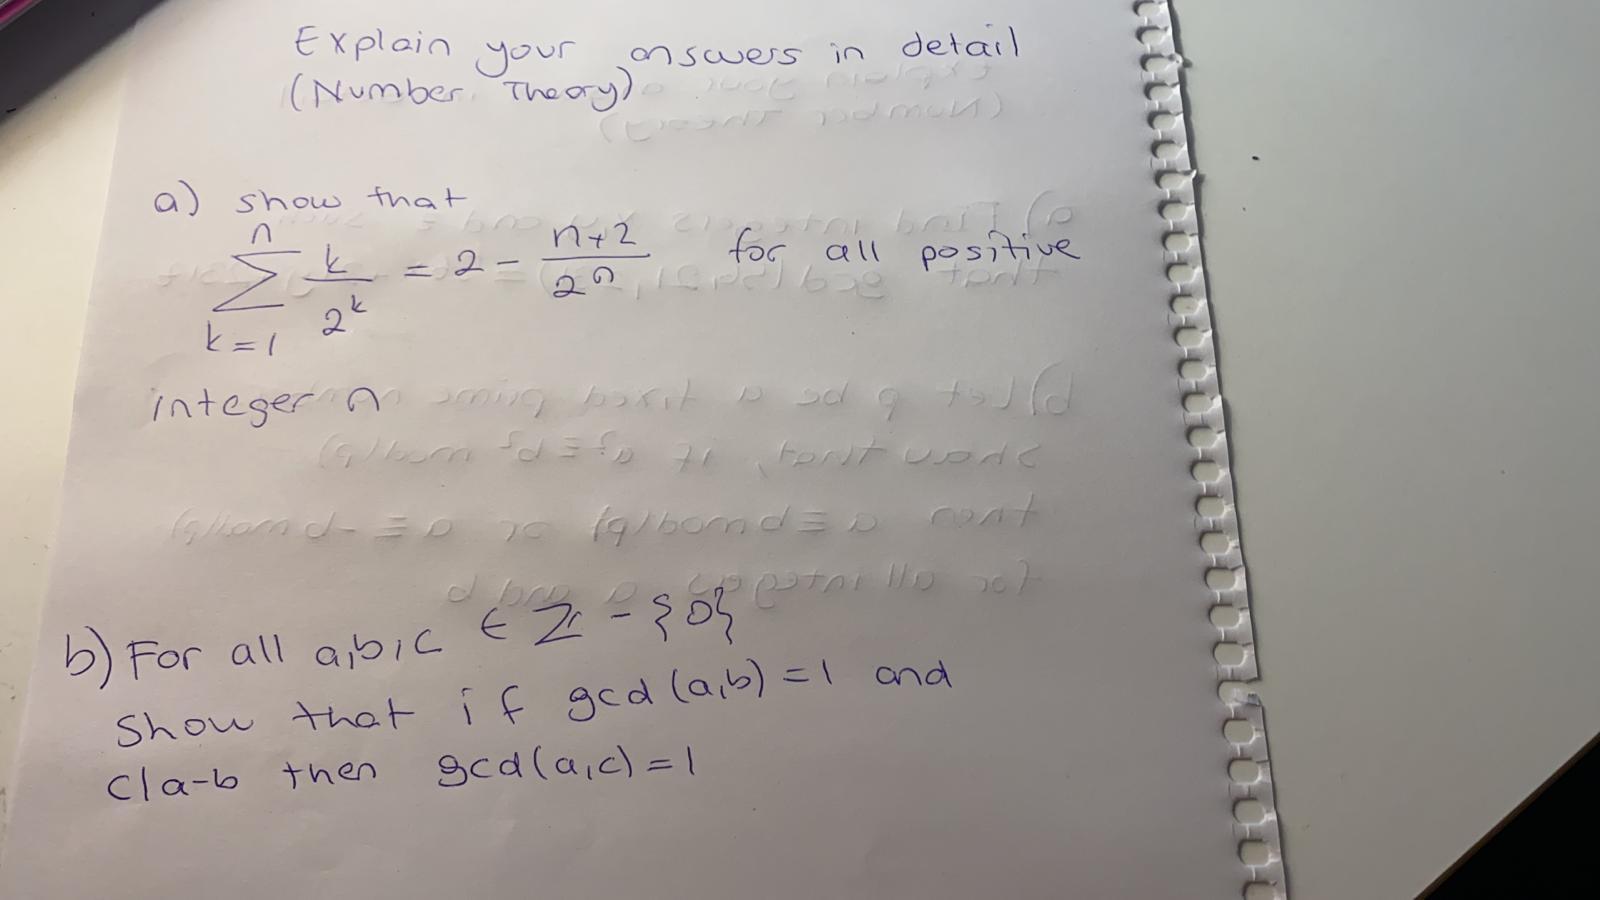 Explain your answers in detail
(Number Theory)
a) show that
n
∑ k/2^k = 2 - (n+2)/2^n for all positive
k=1
integer n
b) For all a,b,c ∈ ℤ - {0}
Show that if gcd(a,b)=1 and
c|a-b then gcd(a,c)=1